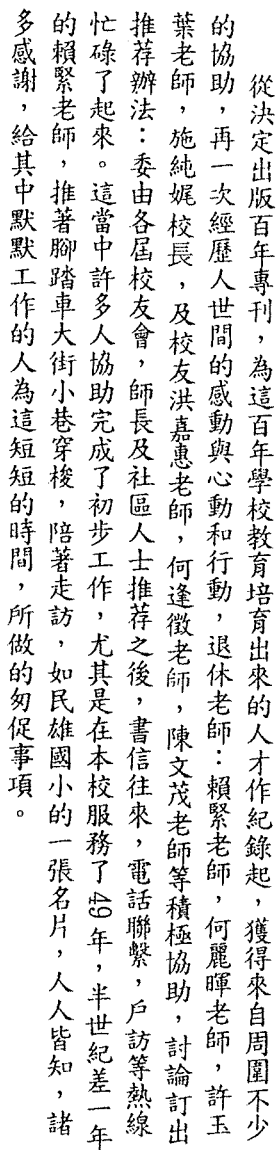 從決定出版百年專刊，為這百年學校教育培育出來的人才作紀錄起，獲得來自周圍不少
的協助，再一次經歷人世間的感動與心動和行動，退休老師：賴緊老師，何麗暉老師，許玉
葉老師，施純娓校長，及校友洪嘉惠老師，何逢徵老師，陳文茂老師等積極協助，討論訂出
推荐辦法：委由各屆校友會，師長及社區人士推荐之後，書信往來，電話聯繫，戶訪等熱線
忙碌了起來。這當中許多人協助完成了初步工作，尤其是在本校服務了49年，半世紀差一年
的賴緊老師，推著腳踏車大街小巷穿梭，陪著走訪，如民雄國小的一張名片，人人皆知，諸
多感謝，給其中默默工作的人為這短短的時間，所做的匆促事項。